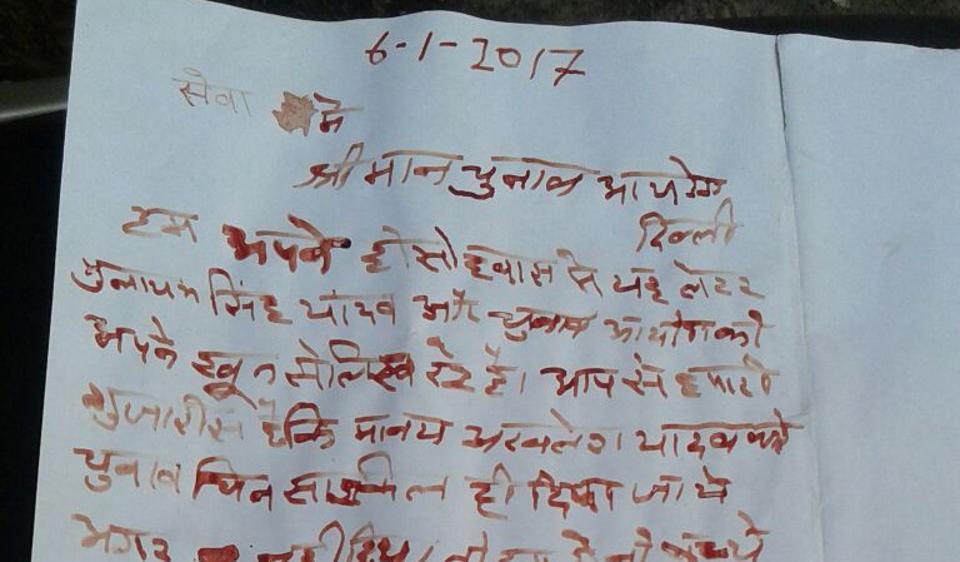 6-1-2017
सेवा में
श्रीमान चुनाव आयोग
दिल्ली
हम अपने होसोहवास से यह लेटर
मुलायम सिंह यादव और चुनाव आयोग को
अपने खून से लिख रहे है। आप से हमारी
गुजारीस है कि मानय अखलेश यादव को
चुनाव चिन साईकिल ही दिया जाये
अगर नही दिया तो